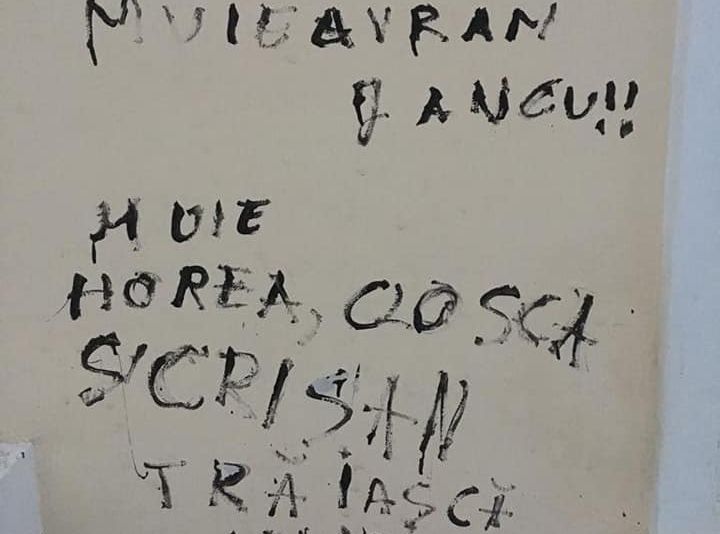 MUIE AVRAM
JANCU!!
MUIE
HOREA, CLOSCA
SI CRIȘAN
TRĂIASCĂ